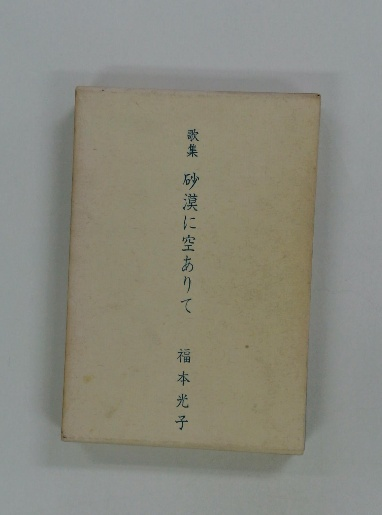 歌集 砂漠に空ありて 福本光子